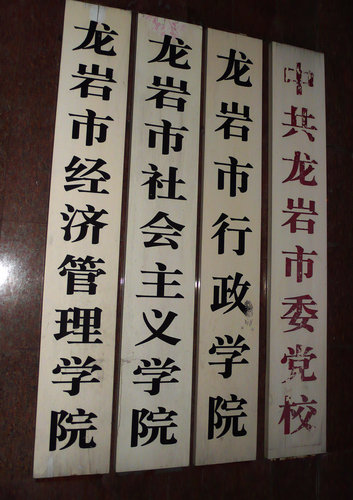 中共龙岩市委党校
龙岩市行政学院
龙岩市社会主义学院
龙岩市经济管理学院